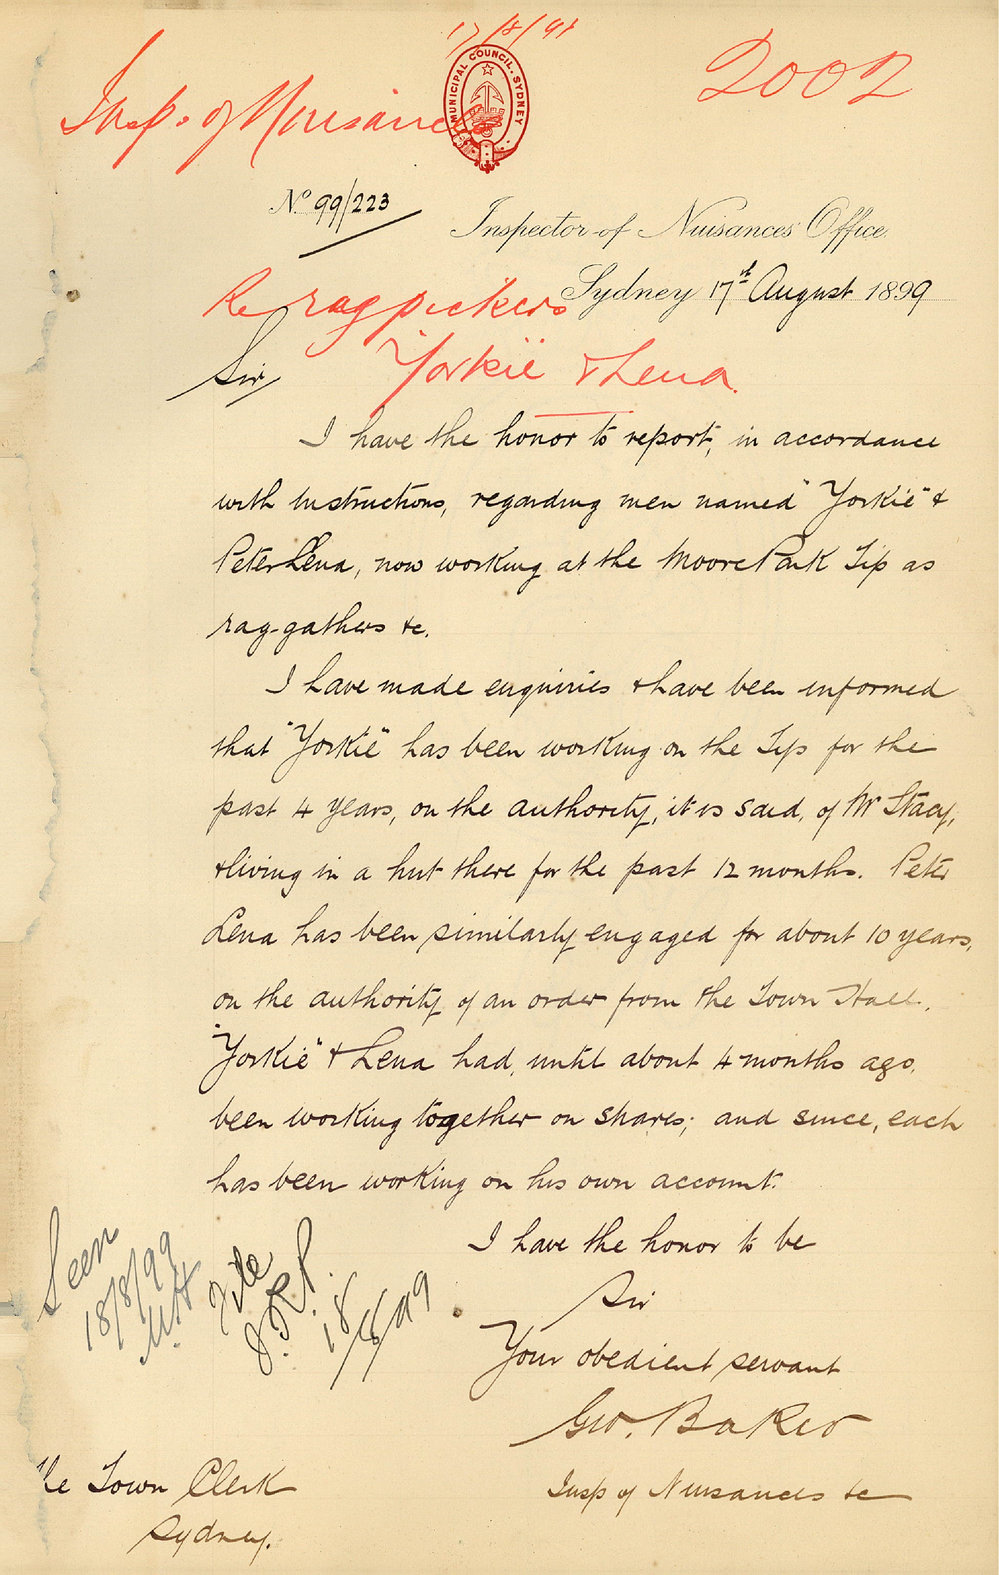 17/8/99
Insp. of Nuisances
2002
MUNICIPAL COUNCIL. SYDNEY
No. 99/223
Inspector of Nuisances Office,
Sydney 17th August 1899
Re ragpickers
"Yorkie" & Lena.
Sir,
I have the honor to report, in accordance
with instructions, regarding men named "Yorkie" &
Peter Lena, now working at the Moore Park Tip as
rag-gathers &c.
I have made enquiries & have been informed
that "Yorkie" has been working on the Tip for the
past 4 years, on the authority, it is said, of Mr Stacy,
& living in a hut there for the past 12 months. Peter
Lena has been similarly engaged for about 10 years,
on the authority of an order from the Town Hall.
"Yorkie" & Lena had, until about 4 months ago,
been working together on shares; and since, each
has been working on his own account.
I have the honor to be
Sir
Your obedient servant
Geo. Baker
Insp of Nuisances &c
Seen
18/8/99
File
18/8/99
The Town Clerk
Sydney.